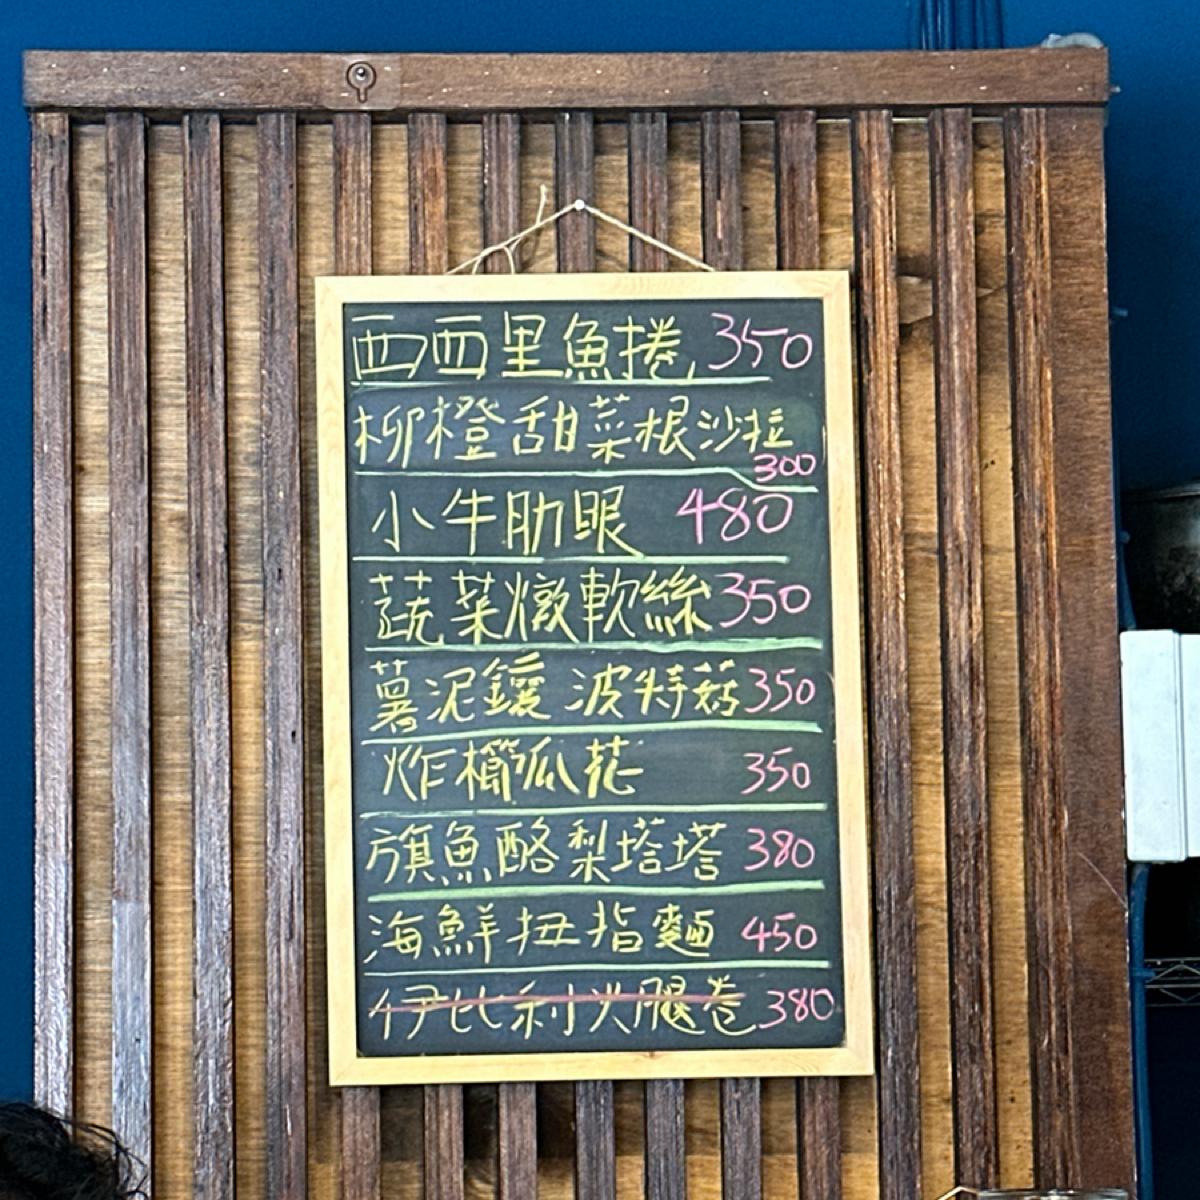 西西里魚捲 350
柳橙甜菜根沙拉
300
小牛肋眼 480
蔬菜燉軟絲 350
薯泥鑲波特菇 350
炸櫛瓜花 350
旗魚酪梨塔塔 380
海鮮扭指麵 450
伊比利火腿卷 380